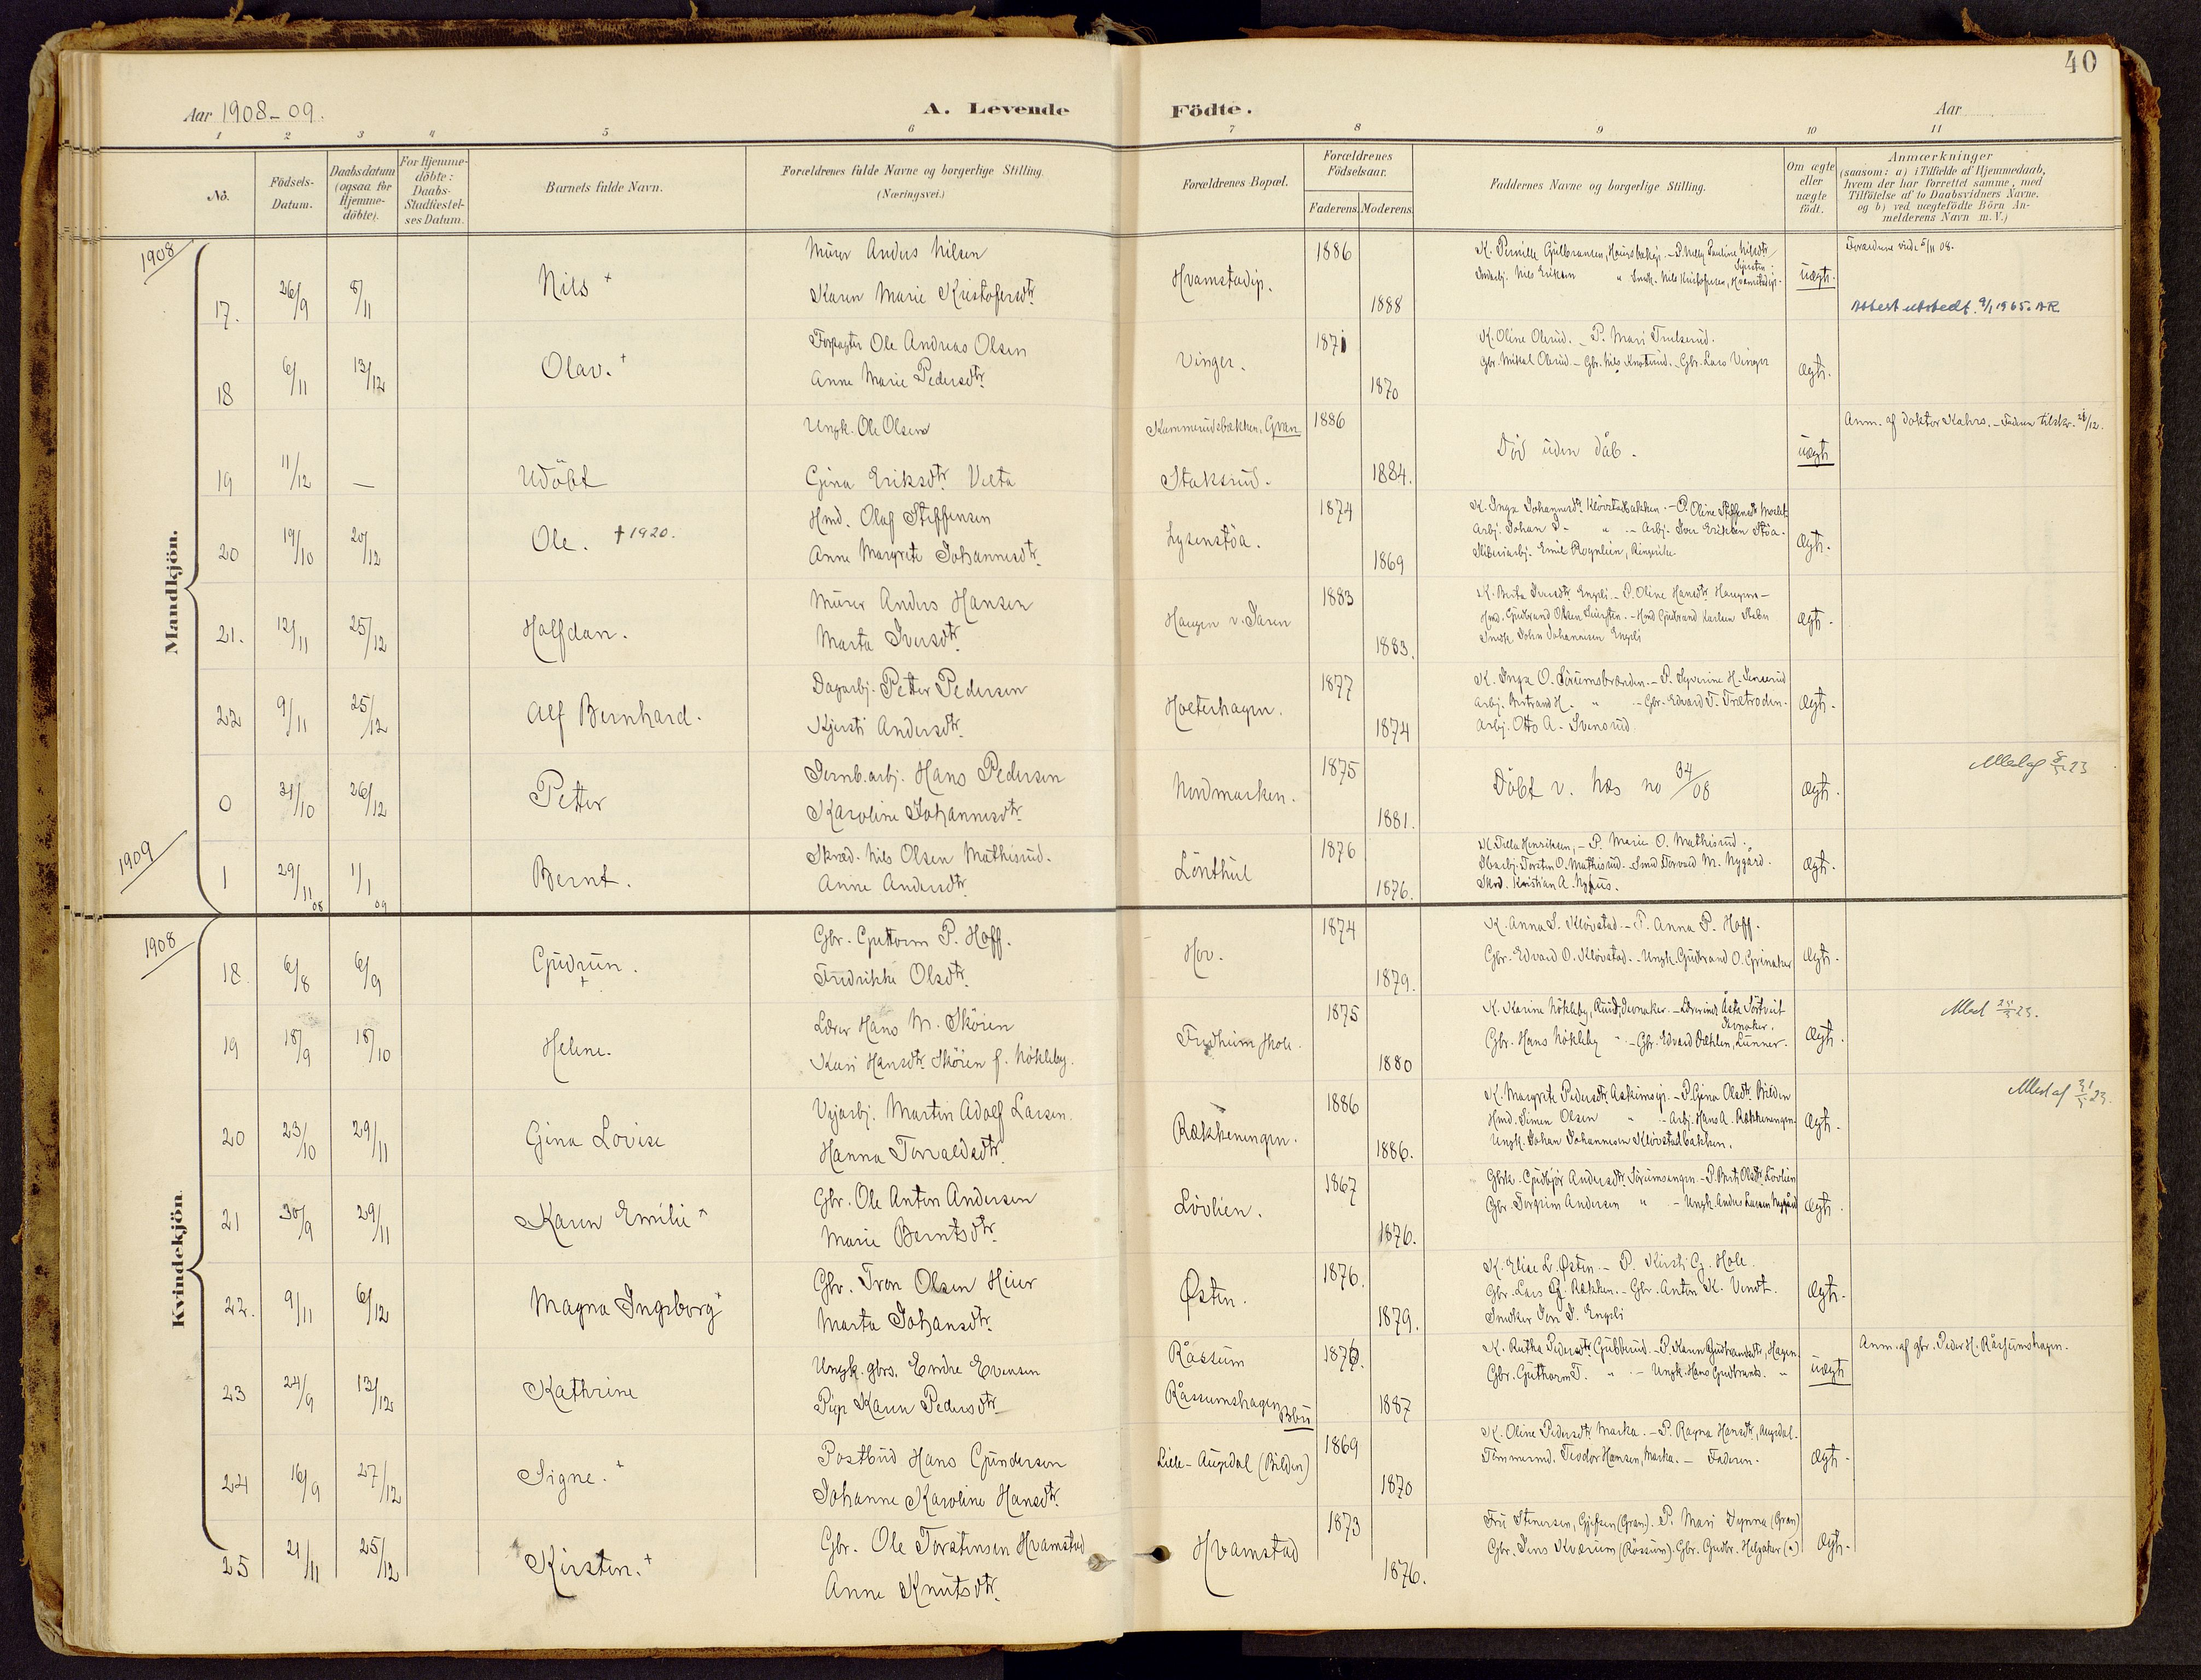 40
Aar 1908-09.
A. Levende Födte.
Aar
1 2 3 4 5 6 7 8 9 10 11
No.
Födsels-Datum.
Daabsdatum (ogsaa for Hjemme-döbte).
For Hjemme-döbte: Daabs-Stadfæstel-ses Datum.
Barnets fulde Navn.
Forældrenes fulde Navne og borgerlige Stilling. (Næringsvei.)
Forældrenes Bopæl.
Forældrenes Födselsaar.
Faderens. Moderens.
Faddernes Navne og borgerlige Stilling.
Om ægte eller uægte födt.
Anmærkninger
(saasom: a) i Tilfælde af Hjemmedaab,
hvem der har forrettet samme, med
Tilföielse af to Daabsvidners Navne.
og b) ved uægtefödte Börn An-
melderens Navn m. V.)
Mandkjön.
1908
17. 26/9 8/11 Nils +
Murer Anders Nilsen
Karen Marie Kristofersdtr.
Hvamstadip. 1886 1888
uægte.
Forældrene viede 5/11 08.
Attest utstedt. 9/1 1965. AR
18 6/11 13/12 Olav. +
Forpagter Ole Andreas Olsen
Anne Marie Pedersdtr.
Vinger. 1871 1870
K. Oline Olerud. - P. Mari Trulserud.
Gbr. Mikkel Olerud - Gbr. Nils - Gbr. Lars Vinger
ægte.
19 11/12 — Udöbt
Ungk. Ole Olsen
Gina Eriksdtr. Velta
Kammerudsbakken, Gran
Staksrud. 1886 1884.
Död uden dåb.
uægte
Anm. af doktor Kahrs.
20 19/10 20/12 Ole. +1920.
Hmd. Olaf Steffensen
Anne Margrete Johannesdtr.
Lysenstöa. 1874 1869
K. Inga Johannesdtr. Klövstadbakken. - P. Oline Steffensdtr
Arbj. Johan J. - " - Arbj. Iver Eriksen Stöa.
Ægte.
21. 12/11 25/12 Halfdan.
Murer Anders Hansen
Marta Iversdtr.
Haugen v. Jaren 1883 1883.
K. Berta Iversdtr. Engeli - P. Oline Hansdtr. Haugen -
Johan Johannesen Engeli
Ægte.
22 9/11 25/12 Alf Bernhard.
Dagarbj. Petter Pedersen
Kjersti Andersdtr.
Holterhagen. 1877 1874
K. Inga O. Sörumsbraaden. - P. Syverine H.
Arbj. H. " - Gbr. Edvard T. Trætroden.
Arbj. Otto A. Svensrud
Ægte.
0 31/10 26/12 Petter
Jernb.arbj. Hans Pedersen
Karoline Johannesdtr.
Nordmarken. 1875 1881.
Döbt v. Næs no 34/08
Ægte.
1909
1 29/11 08 1/1 09 Bernt.
Skræd. Nils Olsen Mathisrud.
Anne Andersdtr.
Lönthul 1876 1876.
P. Marie O. Mathisrud.
Torsten O. Mathisrud. - Torvald M. Nygård.
Skrd. Kristian A. Nyhus.
Ægte.
Kvindekjön.
1908
18. 6/8 6/9 Gudrun. +
Gbr. Guttorm P. Hoff.
Fredrikke Olsdtr.
Hov. 1874 1879.
K. Anna S. Klövstad. - P. Anna P. Hoff.
Gbr. Edvard O. Klövstad. - Ungk. Gudbrand O. Grinaker
Ægte.
19 18/9 18/10 Helene.
Lærer Hans M. Sköien
Kari Hansdtr. Sköien f. Nökleby.
Fredheim skole. 1875 1880
K. Karine Nökleby, Ruud, Jevnaker. - Lærerinde Åsta Sörtveit Jevnaker.
Gbr. Hans Nökleby " - Gbr. Edvard Dæhlen, Lunner.
Ægte.
20 23/10 29/11 Gina Lovise
Veiarbj. Martin Adolf Larsen.
Hanna Torvaldsdtr.
Rækkeneningen. 1886 1886.
K. Margrete Pedersdtr. - P. Gina Olsdtr. Bilden
Hmd. Simen Olsen " - Arbj. Hans A. Rækkeneningen
Ungk. Johan Johannesen Klövstadbakken.
Ægte.
21 30/9 29/11 Karen Emilie +
Gbr. Ole Anton Andersen
Marie Berntsdtr.
Lövlien. 1867 1876.
Gudbjör Andersdtr. Sörumsengen - P. Berit Olsdtr. Lövlien
Gbr. Torgrim Andersen " - Ungk. Anders Larsen Nygård
Ægte.
22. 9/11 6/12 Magna Ingeborg +
Gbr. Tron Olsen Heier
Marta Johansdtr.
Østen. 1876. 1879.
K. Elise L. Østen. - P. Kirsti G. Hole.
Gbr. Lars G. Rækken. - Gbr. Anton K. Vendt.
Snedker Jon J. Engeli
Ægte.
23 24/9 13/12 Kathrine
Ungk. gbrs. Endre Evensen
Pige Karen Pedersdtr.
Råssum
Råssumshagen Bbu 1876. 1887
K. Ruthe Pedersdtr. Gubberud. - P. Karen Gudbrandsdtr., Hagen.
Gbr. Guthorm T. " - Ungk. Hans Gudbrands. "
uægte
Anm. af gbr. Peder H. Råssumshagen.
24 16/9 27/12 Signe. +
Postbud Hans Gundersen
Johanne Karoline Hansdtr.
Lille-Augedal (Bilden) 1869 1870
K. Oline Pedersdtr. Marka. - P. Ragna Hansdtr., Augedal.
Tömmermd. Teodor Hansen, Marka. - Faderen.
Ægte.
25 21/11 25/12 Kirsten. +
Gbr. Ole Torstensen Hvamstad
Anne Knutsdtr.
Hvamstad 1873 1876.
Fru Stenersen, Gjefsen (Gran). P. Mari Tynna (Gran)
Gbr. Jens Kværum (Råssum). Gbr. Gudbr. Helgaker (")
Ægte.